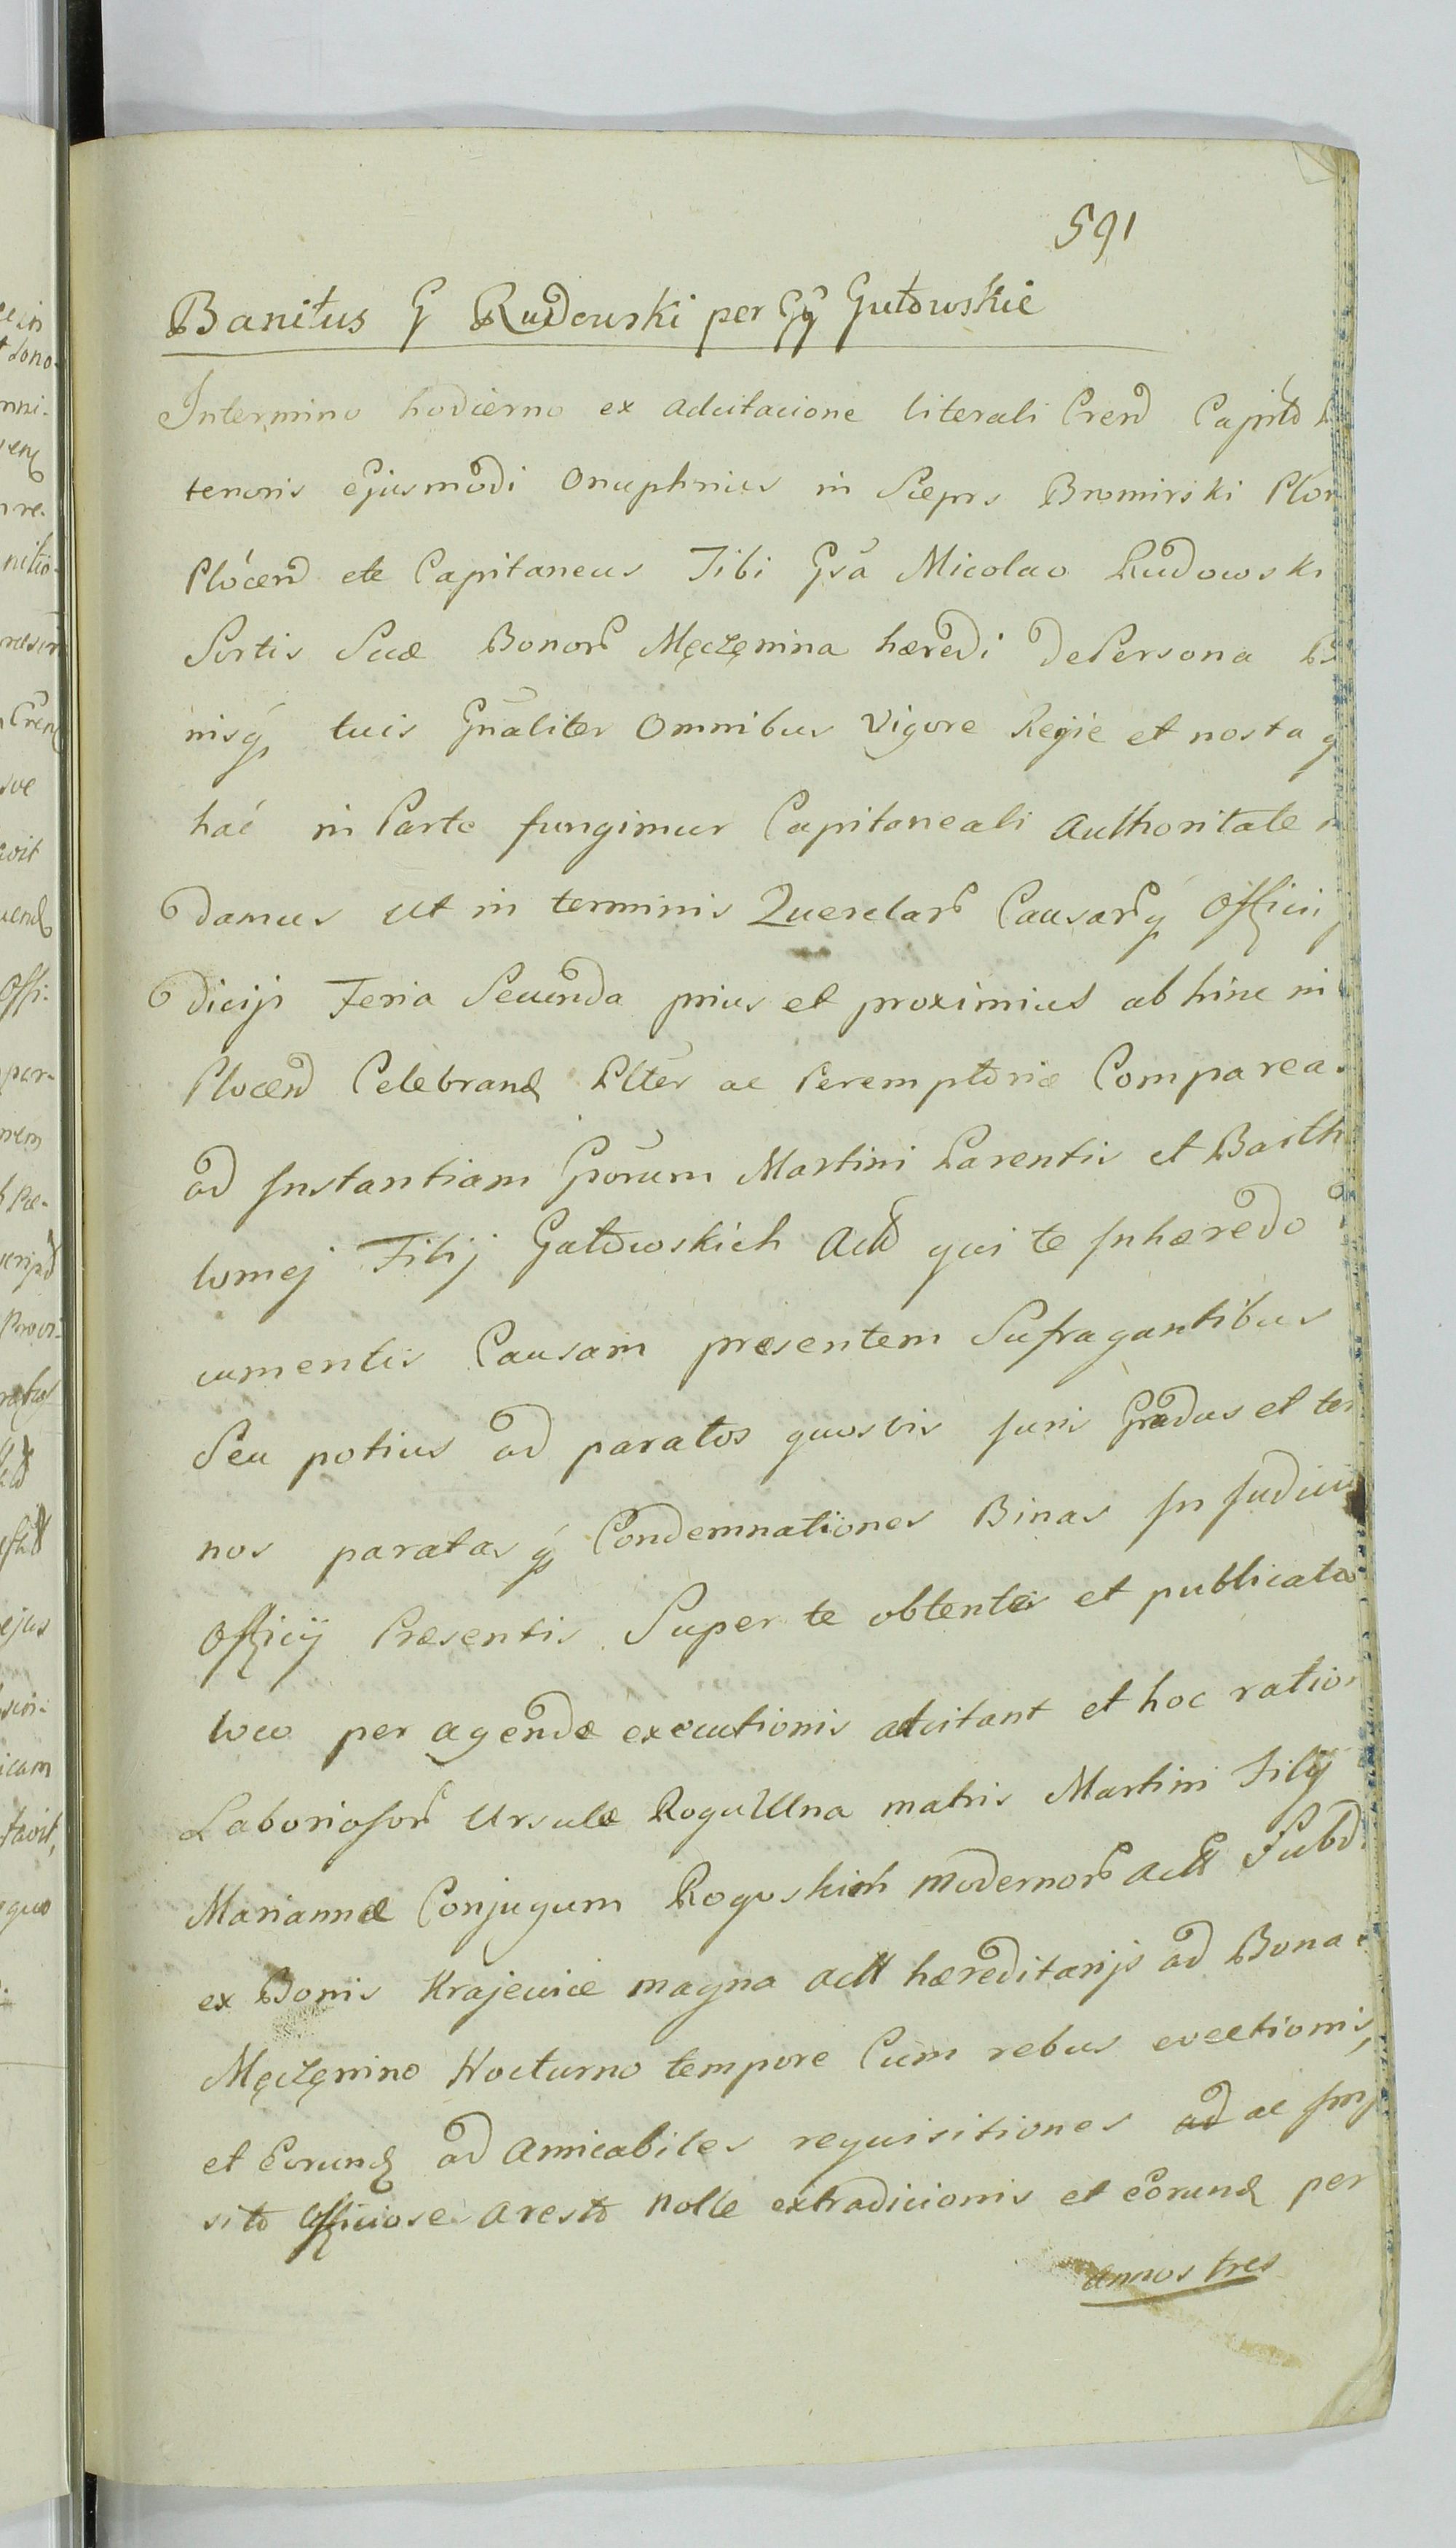 591
Banitus G Rudowski per GG Gutowskie
Intermino hodierno ex adcitacione literali Crend Capitd
tenoris ejusmodi Onuphrius in Sieprs Bromirski Plon
Plócend ete Capitaneus Tibi Gsã Micolao Rudowski
Sortis Suæ Bonorꝫ Męczęnina hæredi de Persona
nisq́ tuis Gñaliter Omnibus vigore Regie et nosta q
hać in Parte fungimur Capitaneali Authoritate
damus ut in terminis Querelarꝫ Causarꝫq́ Officii
dicijs Feria Secunda prius et proximius ab hinc in
Plocend Celebrand Pltẽr ac Peremptorie Comparea
ad Instantiam Gõrum Martini Parentis et Barth
lomej Filij Gutowskich Actt qui te Inhæredo
cumentis Causam præsentem Sufragantibus
Seu potius ad paratos quosvis Juris Gradus et ter
nos paratasq́ Condemnationes Binas In Judicio
Officij Præsentis Super te obtentas et publicatas
loco per agendæ executionis adcitant et hoc ration
Laboriosorꝫ Ursulæ Rogullna matris Martini Filij
Mariannæ Conjugum Roguskich modernorꝫ actt Subd
ex Bonis Krajewice magna actt hæreditarijs ad Bona
Męczęnino Nocturno tempore Cum rebus evectionis,
et Eorund ad amicabiles requisitiones ad ac Imp
sito Officiose aresto nolle extradicionis et eorund per
annos tres